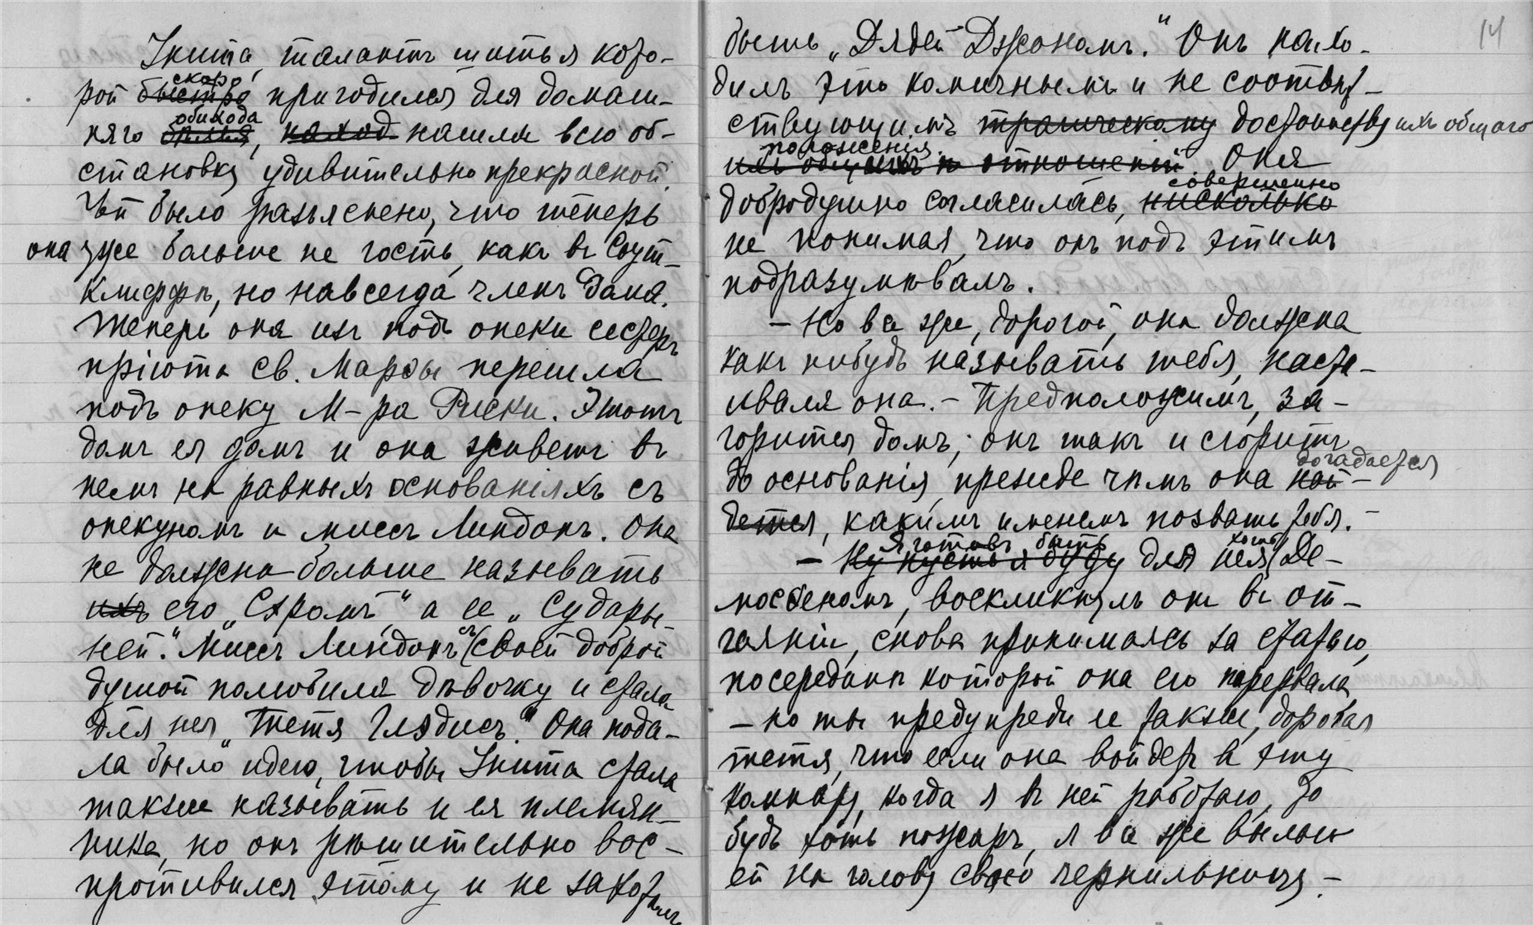 Унита, талантъ шитья кото-
рой быстро скоро пригодился для домаш-
няго бѣлья обихода, наход нашла всю об-
становку удивительно прекрасной.
Ей было разъяснено, что теперь
она уже больше не гость, какъ въ Соут-
Клиффѣ, но навсегда членъ дома.
Теперь она изъ подъ опеки сестеръ
пріюта св. Марѳы перешла
подъ опеку М-ра Риски. Этотъ
домъ ея домъ и она живетъ въ
немъ на равныхъ основаніяхъ съ
опекуномъ и миссъ Линдонъ. Она
не должна больше называть
ихъ его „Сэромъ“, а ее „Судары-
ней“. Миссъ Линдонъ съ своей доброй
душой полюбила дѣвочку и стала
для нея „Тетя Глэдисъ“. Она пода-
ла было идею, чтобы Унита стала
также называть и ея племян-
ника, но онъ рѣшительно вос-
противился этому и не захотѣлъ
14
быть „Дядей Джономъ.“ Онъ нахо-
дилъ это комичнымъ и не соотвѣт-
ствующимъ трагическому достоинству ихъ общаго
ихъ общихъ отношеній положенія. Она
добродушно согласилась, нисколько совершенно
не понимая, что онъ подъ этимъ
подразумѣвалъ.
— Но все же, дорогой, она должна
какъ нибудь называть тебя, настаи-
ивала она. — Предположимъ, за-
горится домъ; онъ такъ и сгоритъ
до основанія, прежде чѣмъ она най- догадается
дется, какимъ именемъ позвать тебя. —
— Ну пусть я буду Я готовъ быть для нея хоть Де-
мосѳеномъ, воскликнулъ онъ въ от-
чаяніи, снова принимаясь за статью,
посерединѣ которой она его прервала,
— но ты предупреди ее также, дорогая
тетя, что если она войдетъ въ эту
комнату, когда я въ ней работаю, то
будь хоть пожаръ, я все же вылью
ей на голову свою чернильницу. —